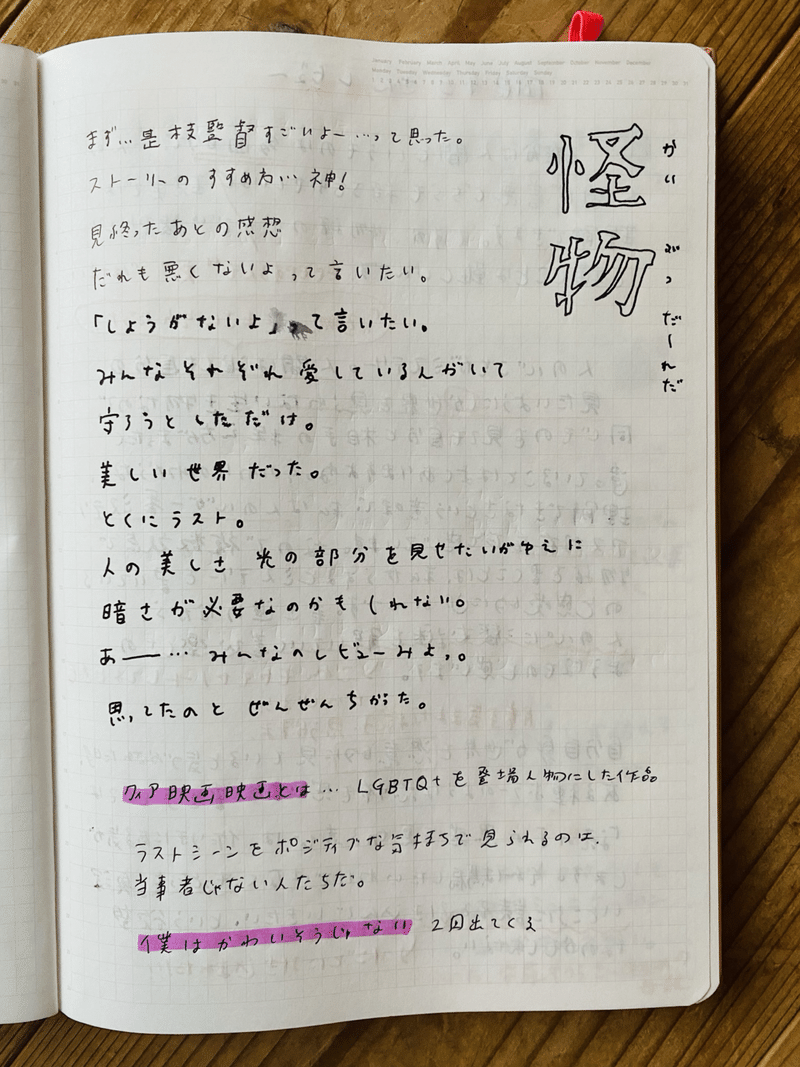 January February March April May June July August September October November December
Monday Tuesday Wednesday Thursday Friday Saturday Sunday
怪物
かいぶつだーれだ
まず…是枝監督すごいよー…って思った。
ストーリーのすすめ方…神!
見終ったあとの感想
だれも悪くないよって言いたい。
「しょうがないよ」って言いたい。
みんなそれぞれ愛しているんがいて
守ろうとしただけ。
美しい世界だった。
とくにラスト。
人の美しさ 光の部分を見せたいがゆえに
暗さが必要なのかもしれない。
あー…みんなのレビューみよっ。
思ってたのとぜんぜんちがった。
クィア映画映画とは…LGBTQ+を登場人物にした作品
ラストシーンをポジティブな気持ちで見られるのは、
当事者じゃない人たちだ。
僕はかわいそうじゃない 2回出てくる